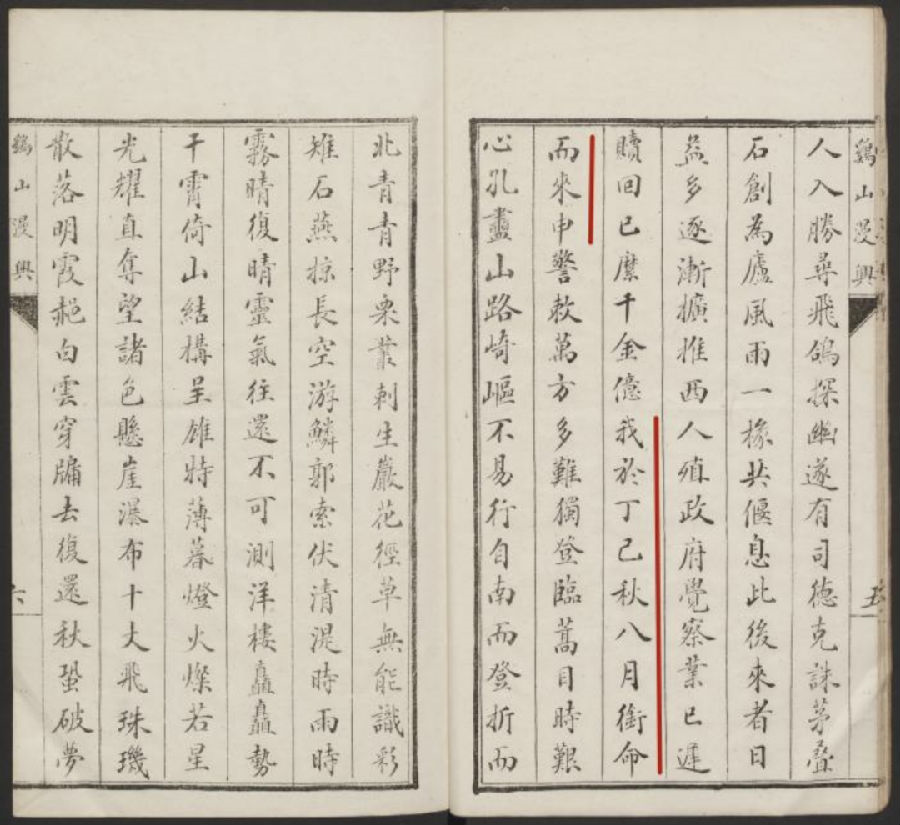 鷄山漫興
五
人入勝尋飛鴿探幽遂有司德克誅茅疊
石創為廬風雨一椽共偃息此後來者日
益多逐漸擴推西人殖政府覺察業已遲
贖回已縻千金億我於丁巳秋八月銜命
而來申警敕萬方多難獨登臨蒿目時艱
心孔衋山路崎嶇不易行自南而登折而
北青青野栗叢刺生巖花徑草無能識彩
雉石燕掠長空游鱗郭索伏清湜時雨時
霧晴復晴靈氣往還不可測洋樓矗矗勢
干霄倚山結構呈雄特薄暮燈火燦若星
光耀直奪望諸色懸崖瀑布十丈飛珠璣
散落明霞赩白雲穿牖去復還秋蛩破夢
鷄山漫興
六